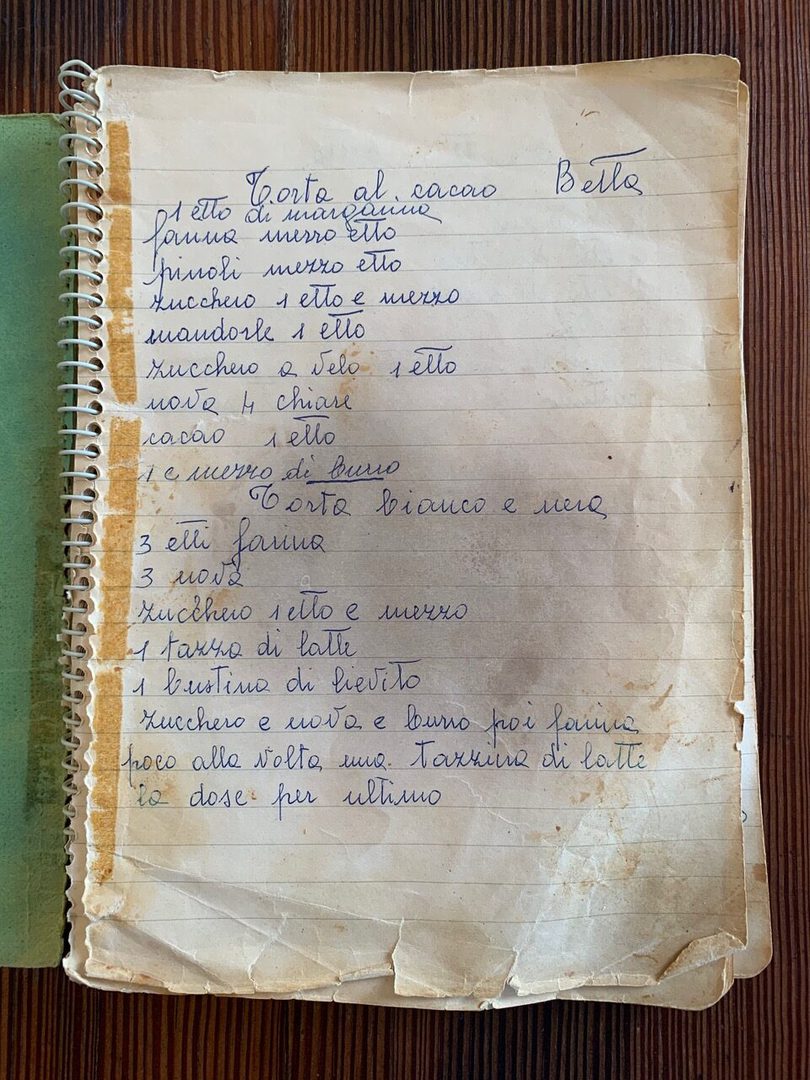 Torta al cacao Betta
1 etto di margarina
farina mezzo etto
pinoli mezzo etto
zucchero 1 etto e mezzo
mandorle 1 etto
zucchero a velo 1 etto
uova 4 chiare
cacao 1 etto
1 e mezzo di burro
Torta bianco e nera
3 etti farina
3 uova
zucchero 1 etto e mezzo
1 tazza di latte
1 bustina di lievito
zucchero e uova e burro poi farina
poco alla volta una tazzina di latte
la dose per ultimo